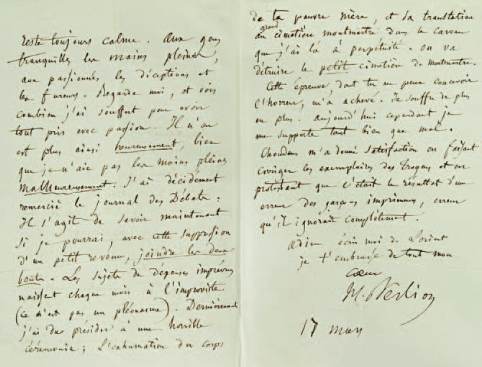 reste toujours calme. Aux gens
tranquilles les mains pleines,
aux passionnés les déceptions et
les fureurs. Regarde moi, et vois
combien j'ai souffert pour avoir
tout pris avec passion. Il n'en
est plus ainsi heureusement bien
que je n'aie pas les mains pleines
malheureusement. J'ai décidément
remercié le journal des Débats.
Il s'agit de savoir maintenant
si je pourrai, avec cette suppression
d'un petit revenu, joindre les deux
bouts. Les sujets de dépense imprévus
naissent chaque mois à l'improviste
(ce n'est pas un pléonasme). Dernièrement
j'ai dû présider à une horrible
cérémonie; l'exhumation du corps
de ta pauvre mère, et sa translation
au grand cimetière montmartre dans le caveau
que j'ai là à perpétuité. On va
détruire le petit cimetière de montmartre.
Cette épreuve, dont tu ne peux concevoir
l'horreur, m'a achevé. Je souffre de plus
en plus. Aujourd'hui cependant je
me supporte tant bien que mal.
Choudens m'a donné satisfaction en faisant
corriger les exemplaires des Troyens et en
protestant que c'était le résultat d'une
erreur des garçons imprimeurs, erreur
qu'il ignorait complètement.
Adieu écris moi de Lorient
je t'embrasse de tout mon
cœur
H. Berlioz
17 mars